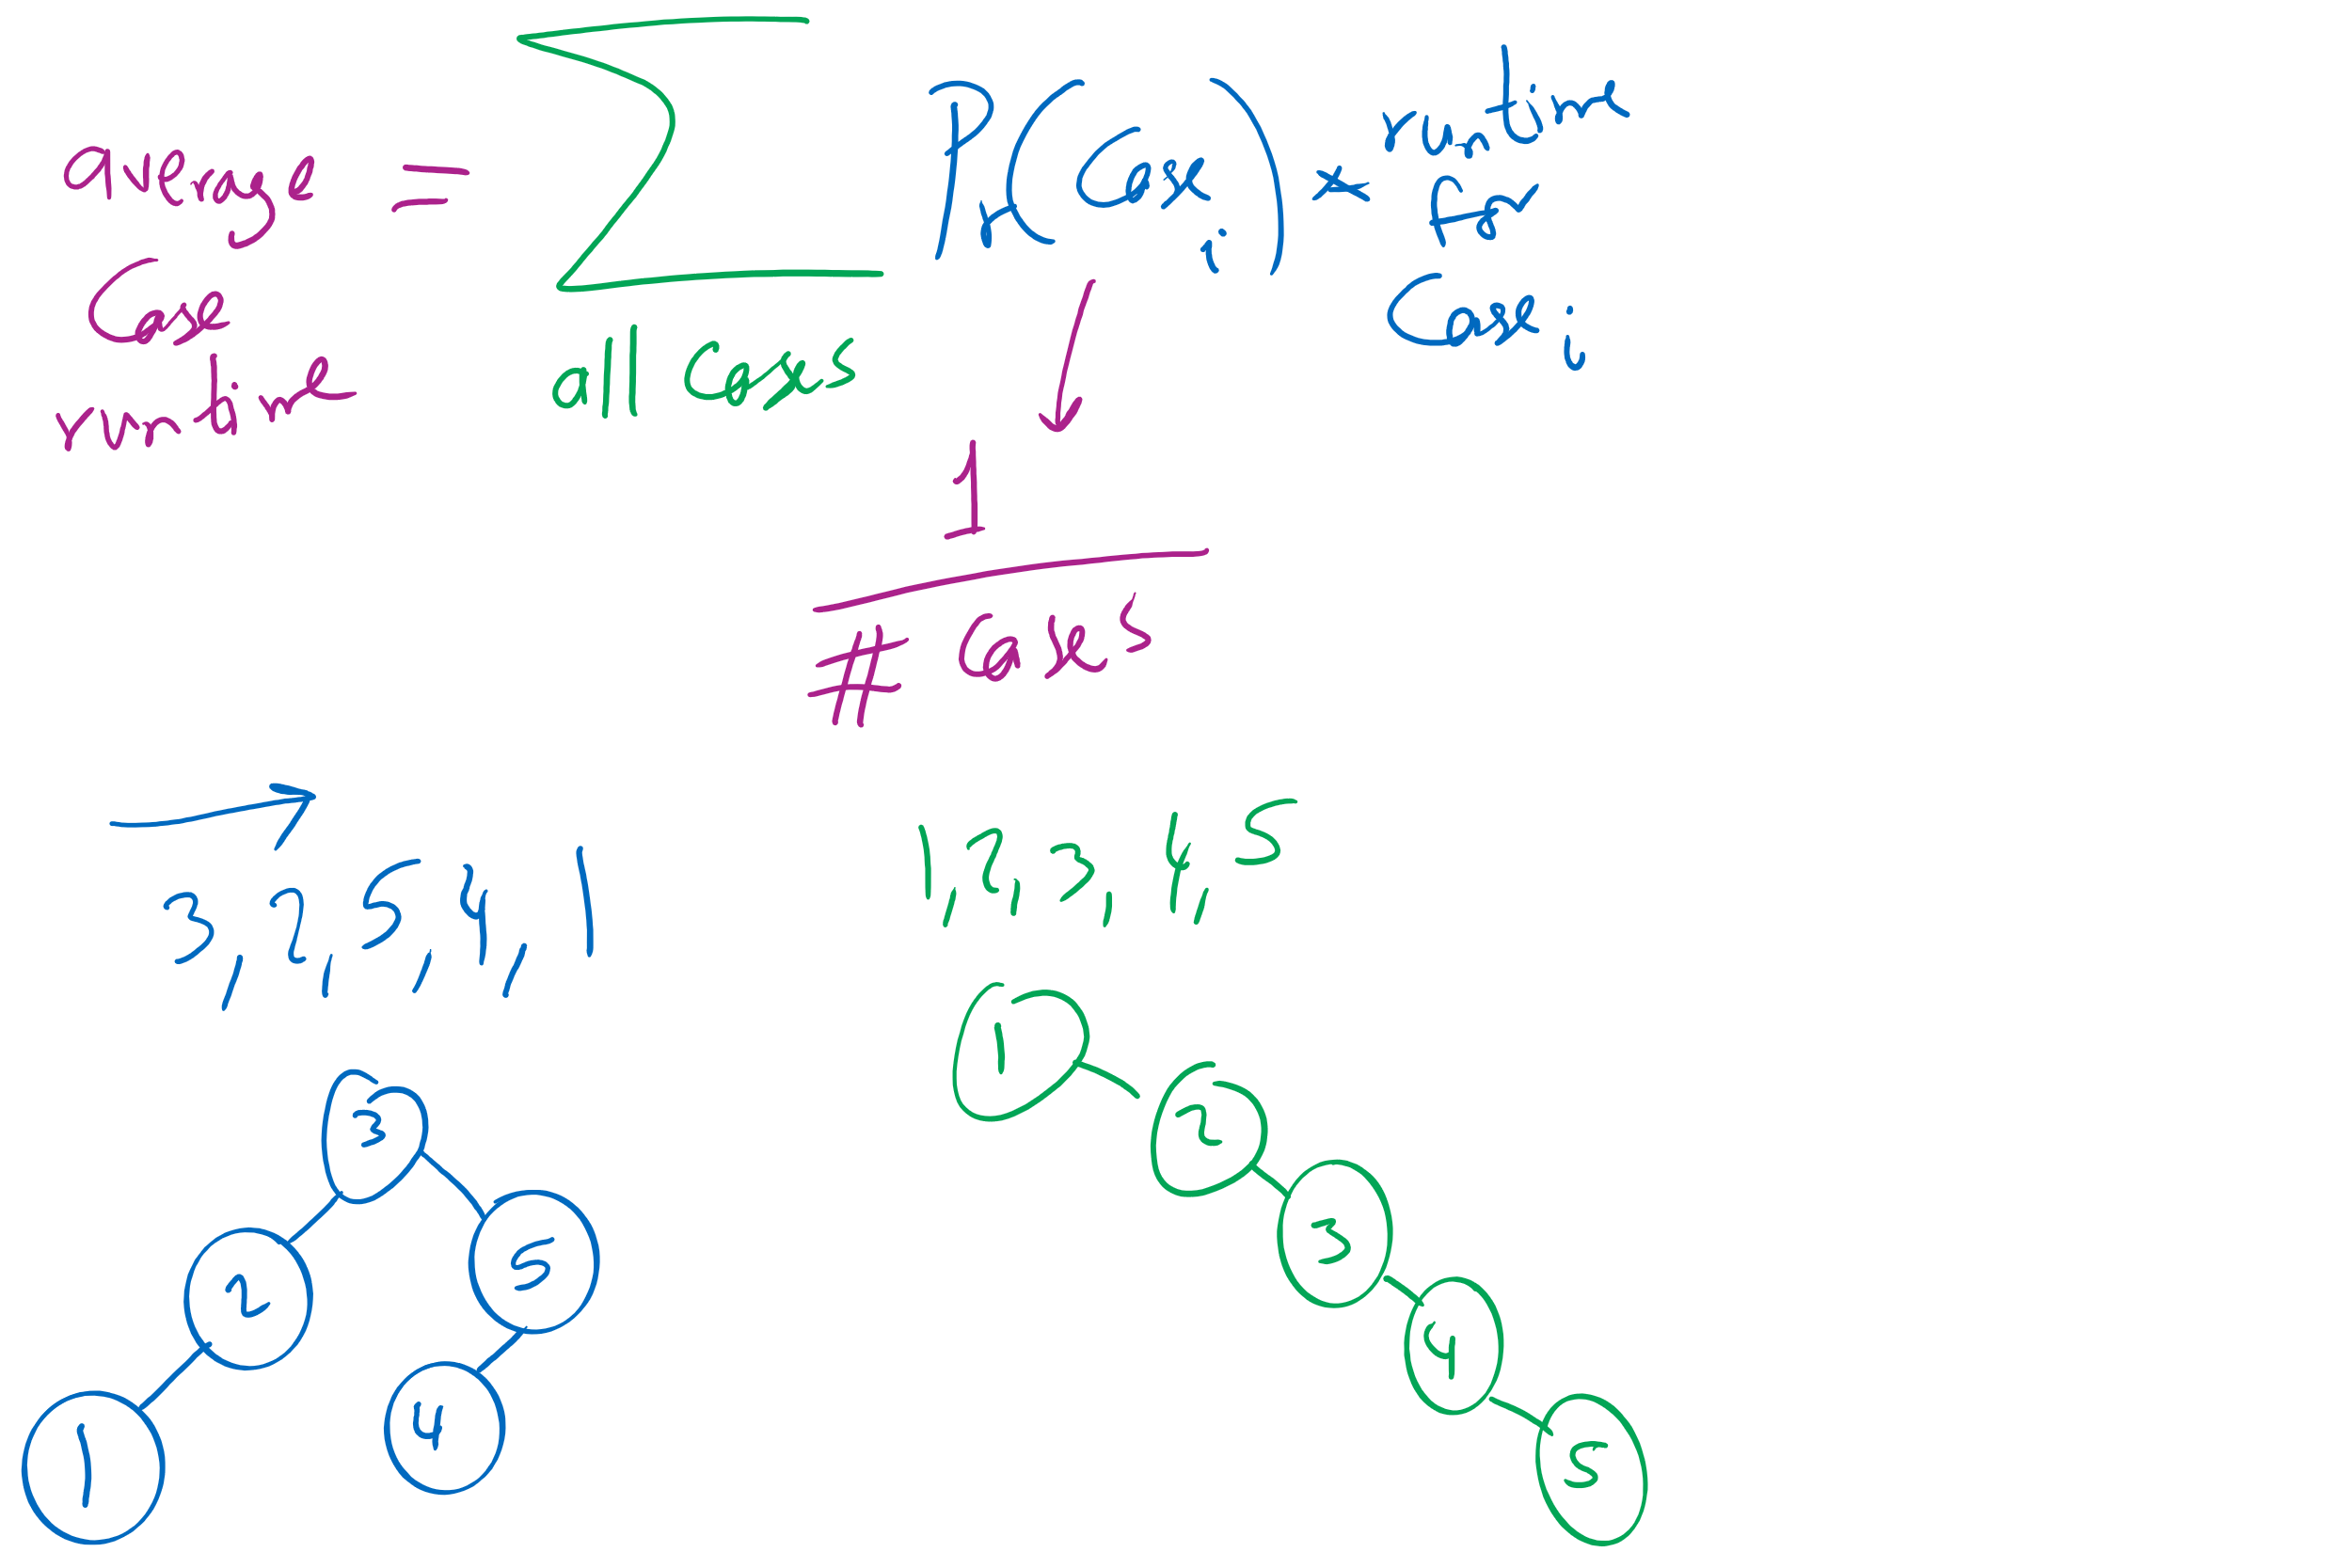 average
Case
runtime
=
∑
all cases
Pr(Case i) * runtime
for
Case i
1
# Cases
3, 2, 5, 4, 1
1, 2, 3, 4, 5
3
2
5
1
4
1
2
3
4
5